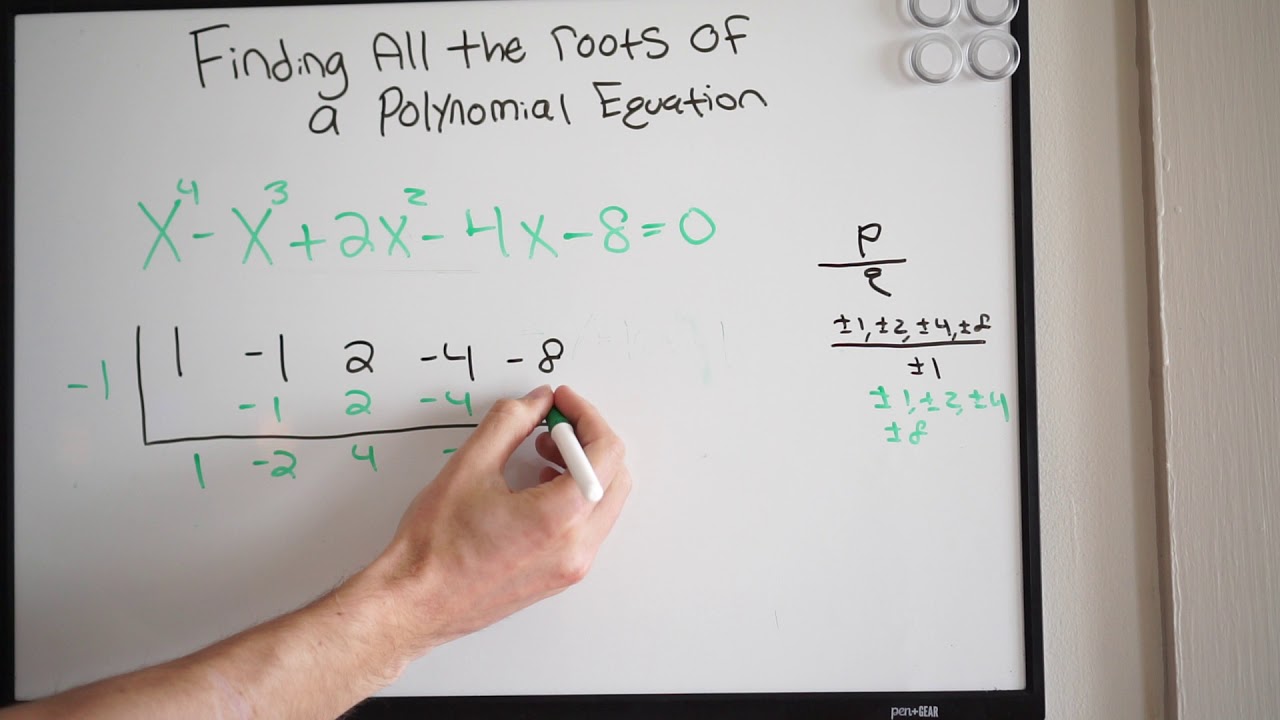 Finding All the roots of
a Polynomial Equation
x⁴ - x³ + 2x² - 4x - 8 = 0
P
q
±1, ±2, ±4, ±8
±1
±1, ±2, ±4
±8
1 -1 2 -4 -8
-1
-1 2 -4
1 -2 4 -
pen+GEAR